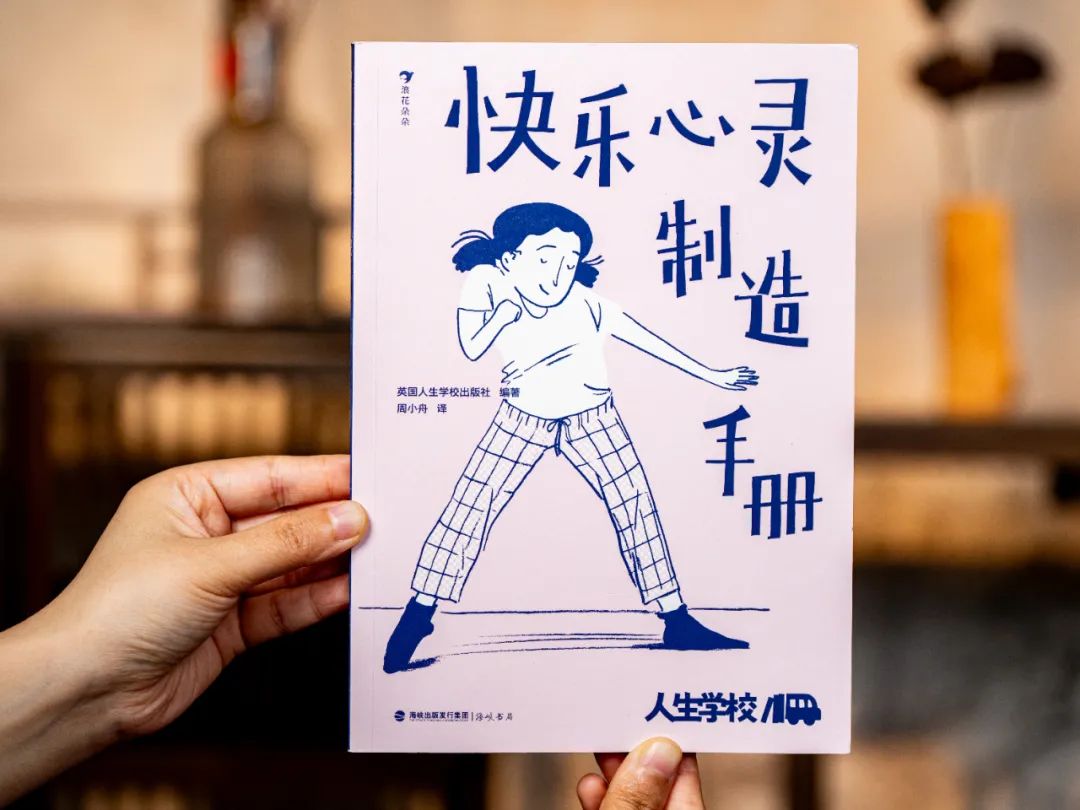 浪花朵朵
快乐心灵
制造
手册
英国人生学校出版社 编著
周小舟 译
海峡出版发行集团 | 海峡书局
人生学校